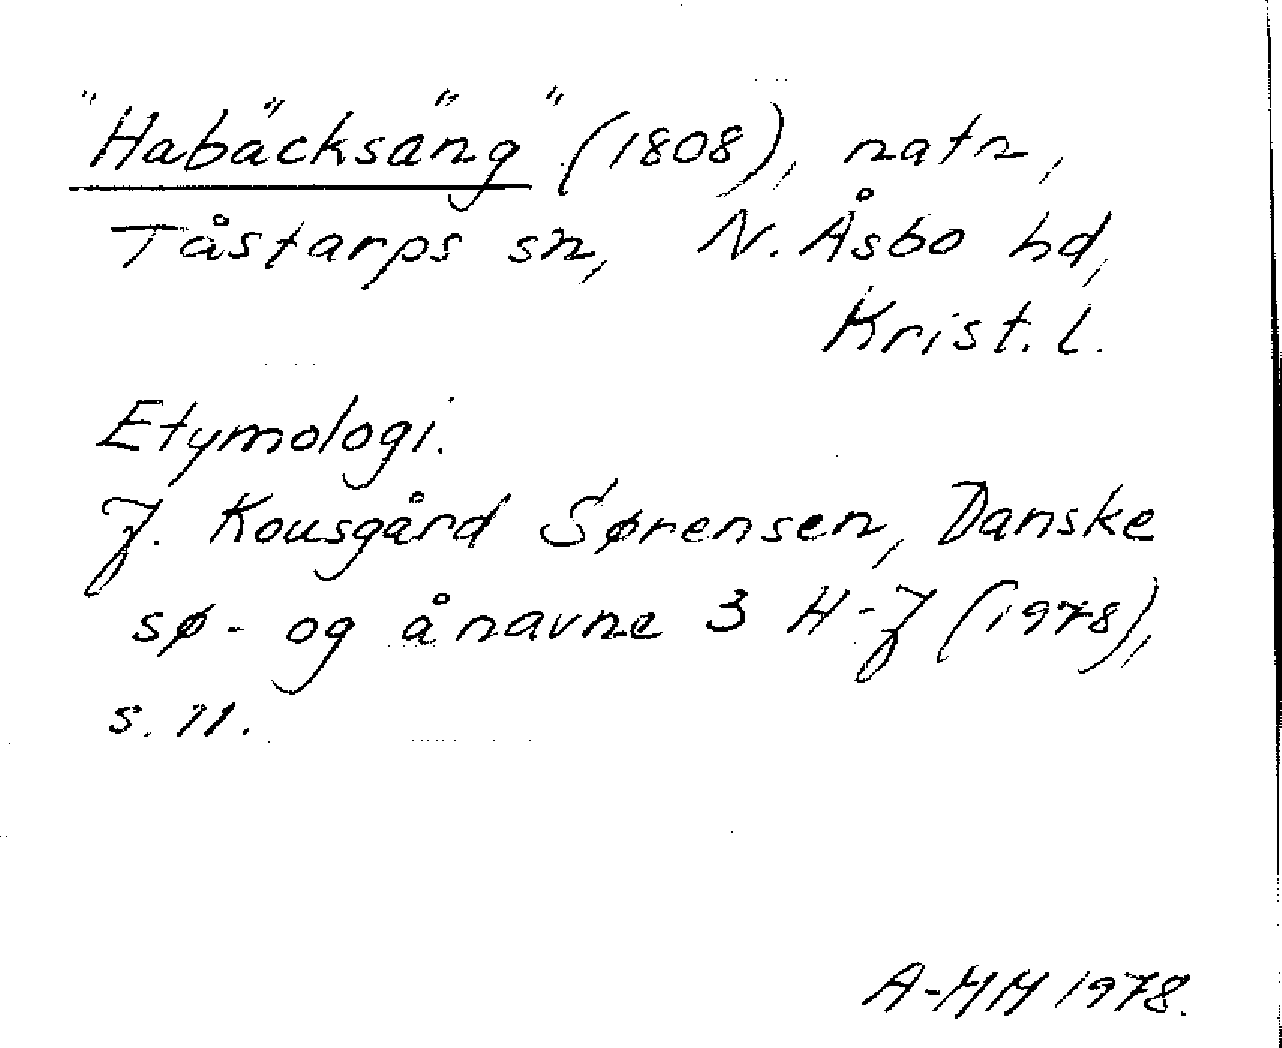 "Habäcksäng" (1808), natn,
Tåstarps sn, N. Åsbo hd,
Krist. l.
Etymologi.
J. Kousgård Sørensen, Danske
sø- og ånavne 3 H-J (1978),
s. 11.
A-MM 1978.